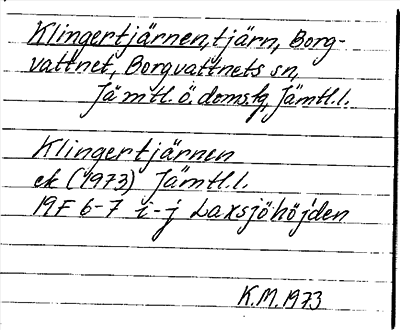 Klingertjärnen, tjärn, Borg-
vattnet, Borgvattnets sn,
Jämtl. ö. doms.g, Jämtl.l.
Klingertjärnen
ek (1973) Jämtl.l.
19F 6-7 i-j Laxsjöhöjden
K.M. 1973